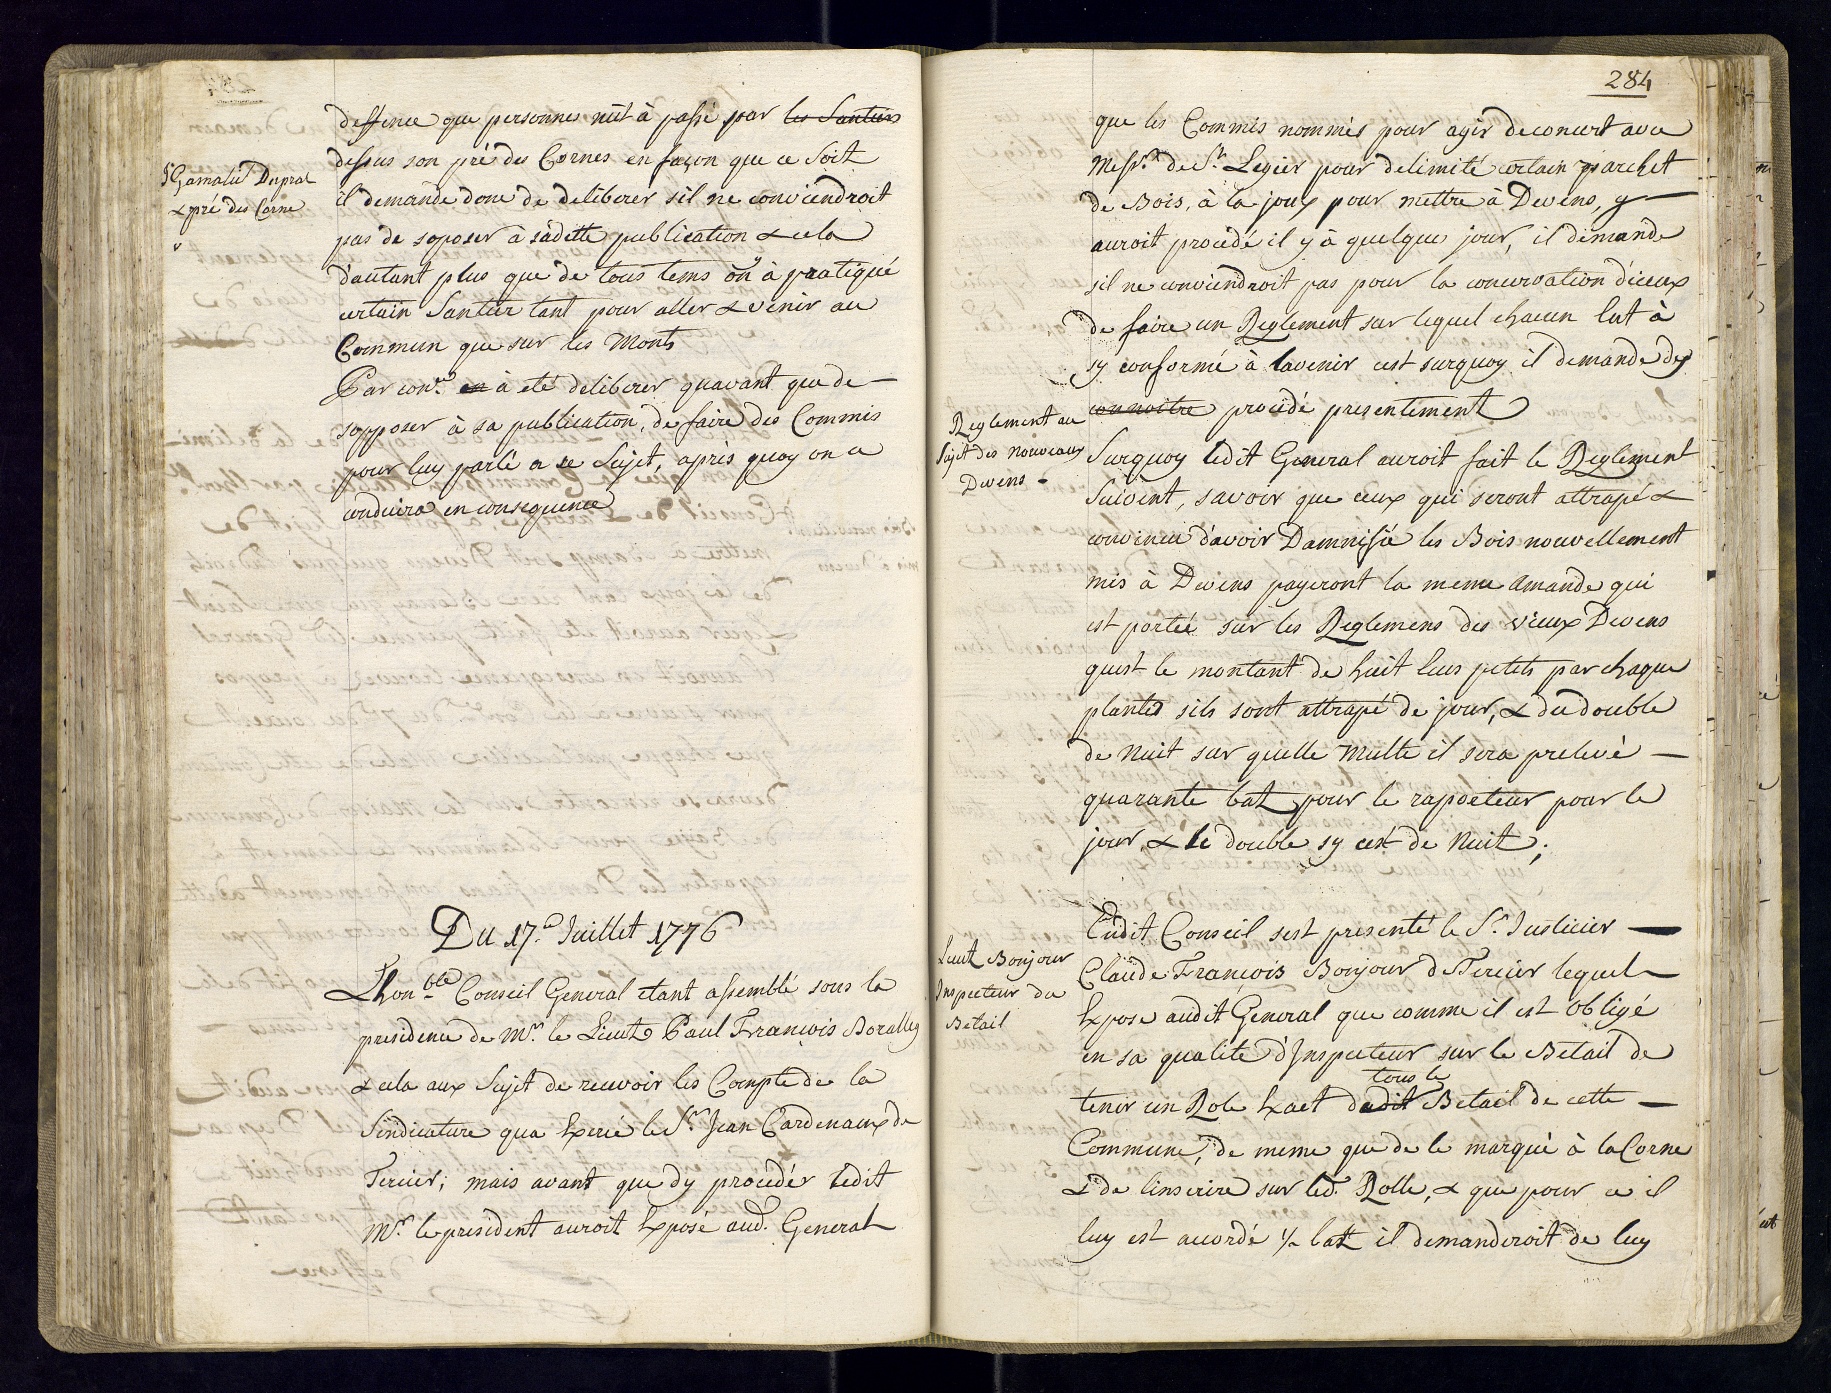 deffence que personne nüt à passé par les Santiers
dessus son pré des Cornes en façon que ce Soit
Sr Gamaliel Duprat
& pré des Corne
il demande donc de deliberer sil ne conviendroit
pas de soposer à sadette publication & cela
dautant plus que de tous tems on à pratiqué
certain Santier tant pour aller & venir au
Commun que sur les Monts
Par conel. en à eté deliberer quavant que de
sopposer à sa publication, de faire des Commis
pour luy parlé a ce Sujet, après quoy on ce
conduira en consequence
Du 17.e Juillet 1776
Lhonble Conseil General etant assemblé sous la
presidence de Mr. le Lieut Paul François Boralley
& cela aux Sujet de recevoir les Compte de la
Sindicature qua Exercé le Sr. Jean Cardenaux de
Fercier; mais avant que dy procedér ledit
Mr. le president auroit Exposé aud. General
284
que les Commis nommés pour agir deconcert avec
Messrs. de St. Legier pour delimité certain parchet
de Bois, à la joux pour mettre à Devens, y
auroit procedé il y à quelque jour, il demande
sil ne conviendroit pas pour la concervation diceux
de faire un Reglement sur lequel chacun lut à
sy conformé à lavenir cest surquoy il demande dy
connoitre procedé presentement
Reglement au
Sujet des nouveaux
Devens
Surquoy ledit General auroit fait le Reglement
Suivent, savoir que ceux qui seront attrapé &
convincu davoir Damnifié les Bois nouvellement
mis à Devens payeront la meme amande qui
est portée sur les Reglemens des vieux Devens
quest le montant de huit Eus petits par chaque
plantes sils sont attrapé de jour, & du double
de Nuit sur quelle Multe il sera prelevé
quarante batz pour le raporteur pour le
jour, & le double sy cest de Nuit;
Lieut Bonjour
Inspecteur du
Betail
Eudit Conseil sest presenté le Sr. Justicier
Claude François Bonjour de Fercier lequel
Expose audit General que comme il est obligé
en sa qualité d'Inspecteur sur le Betail de
tous le
tenir un Role Exact dudit Betail de cette
Commune, de meme que de le marqué à la Corne
& de linscrire sur led. Rolle, & que pour ce il
luy est accordé ½ batz il demanderoit de luy